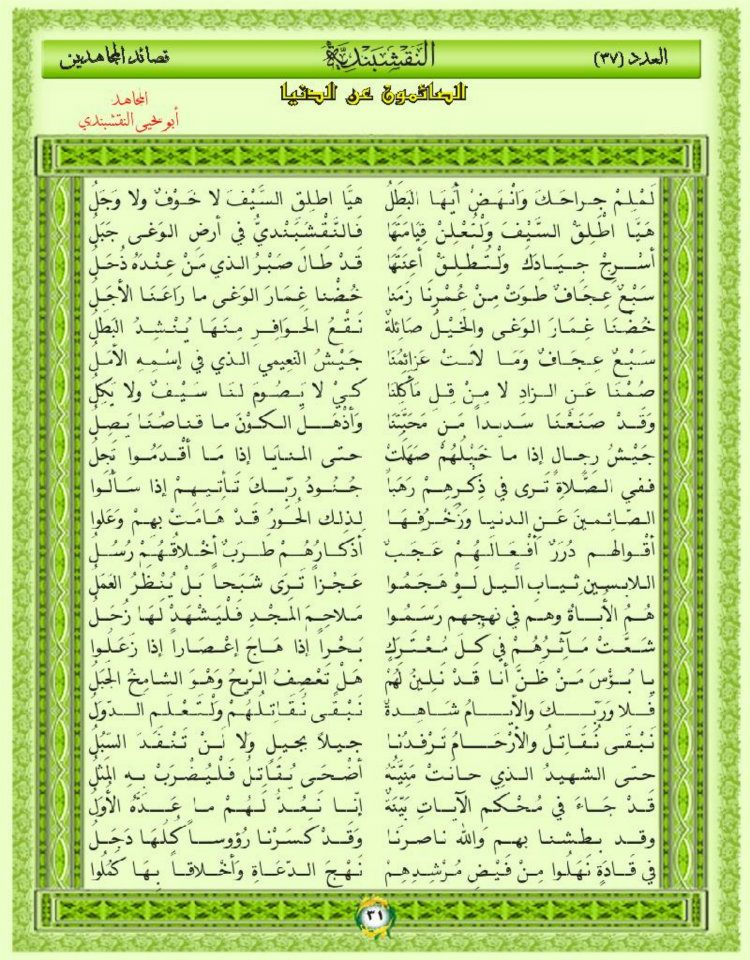 العدد (٣٧) النَّقْشبَنْديَّة قصائد المجاهدين
الصائمون عن الدنيا
المجاهد
أبو يحيى النقشبندي
لَمْلِمْ جِراحَكَ وَانْهَضْ أيُّهَا البَطَلُ هيَّا اطلِقِ السَّيْفَ لا خَوْفٌ ولا وَجَلُ
هَيَّا اطْلِقْ السَّيْفَ وَلْتُعْلِنْ قِيَامَتَهَا فَالنَّقْشَبَنْديُّ في أرضِ الوَغَى جَبَلُ
أسْرِجْ جيَادَكَ وَلْتُطْلِقْ أعِنَتَهَا قَدْ طالَ صَبْرُ الذي مَنْ عِنْدَهُ ذُحَلُ
سَبْعٌ عِجَافٌ طَوَتْ مِنْ عُمْرِنَا زَمَنا خُضْنا غِمَارَ الوَغَى ما رَاعَنَا الأجَلُ
خُضْنَا غِمَارَ الوَغَى والخَيْلُ صَائِلةٌ نَقْعُ الحَوافِرِ مِنهَا يُنْشِدُ البَطَلُ
سَبْعٌ عِجَافٌ وَمَا لانَتْ عَزائِمُنَا جَيْشُ النَعِيمي الذي في إسْمِهِ الأمَلُ
صُمْنَا عَنِ الزادِ لا مِنْ قِلِ مَأكِلَنَا كيْ لا يَصُومَ لنَا سَيْفٌ ولا يَكِلُ
وَقَدْ صَنَعْنَا سديداً مَن مَحَبَّتِنَا وَأذْهَلَ الكوْنَ ما قناصُنَا يَصِلُ
جَيْشُ رِجالٍ إذا ما خَيْلُهُمْ صَهَلَتْ حتى المنايَا إذَا مَا أقْدَمُوا تَجِلُ
ففي الصَّلاةِ تَرى في ذِكرِهِمْ رَهَباً جُنُودُ رَبِّكَ تَأتيهِمْ إذا سَألُوا
الصَّائمينَ عَنِ الدنيا وَزُخْرُفِهَا لِذلِكَ الحُورُ قَدْ هَامَتْ بِهِمْ وَعَلوا
أقْوالهم دُرَرٌ أفْعَالَهُمْ عَجَبٌ أذكارُهُمْ طرَبٌ أخْلاقُهُمْ رُسُلُ
اللابسينَ ثيابَ اليلِ لوْ هَجَمُوا عَجْزاً تَرَى شَبَحاً بَلْ يُنْظَرُ العَمَلُ
هُمُ الأبَاةُ وهم في نهجِهم رَسَمُوا مَلاحِمَ المَجْدِ فَليَشهَدْ لهَا زُحَلُ
شَعَّتْ مآثِرُهُمْ في كلِّ مُعْتَرَكٍ بَحْراً إذا هَاجَ إعْصَاراً إذا زَعَلُوا
يا بُؤْسَ مَنْ ظنَّ أنا قَدْ نَلِينُ لَهُمْ هَلْ تَعْصِفُ الرِيحُ وَهْوَ الشامِخُ الجَبَلُ
فَلا وَرَبِّكَ والأيامُ شَاهِدةٌ نَبْقَى نُقَاتِلُهُمْ وَلْتَعْلَمِ الدوَلُ
نَبْقَى نُقَاتِلُ والأرْحَامُ تَرْفِدُنَا جيلاً بجيلٍ ولا لنْ تَنْفَدَ السُبُلُ
حتى الشهيدُ الذي حانتْ مَنِيَّتُهُ أضْحَى يُقَاتِلُ فَلْيُضْرَبْ بِهِ المَثَلُ
قَدْ جَاءَ في مُحْكَمِ الآياتِ بيِّنَةً إنَّا نَعُدُّ لَهُمْ مَا عَدَّهُ الأُوَلُ
وقد بطشنا بهم وَالله ناصرنَا وَقَدْ كَسَرْنا رُؤوساً كُلُّهَا دَجَلُ
في قَادَةٍ نَهَلُوا مِنْ فَيْضِ مُرْشِدِهِمْ نَهْجَ الدُعَاةِ وَأخْلاقاً بِهَا كَمُلُوا
٣١